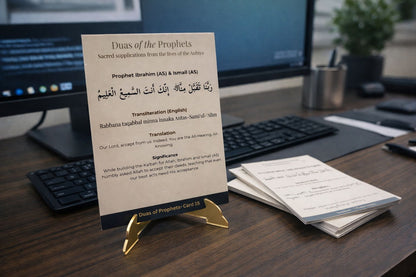 Duas of the Prophets
Sacred supplications from the lives of the Anbiya
Prophet Ibrahim (AS) & Ismail (AS)
رَبَّنَا تَقَبَّلْ مِنَّا إِنَّكَ أَنتَ السَّمِيعُ الْعَلِيمُ
Transliteration (English)
Rabbana taqabbal minna innaka Antas-Samiʿul-ʿAlim
Translation
Our Lord, accept from us. Indeed, You are the All-Hearing, All-
Knowing.
Significance
While building the Ka'bah for Allah, Ibrahim and Ismail (AS)
humbly asked Allah to accept their deeds, teaching that even
our best acts need His acceptance.
Duas of Prophets- Card 15